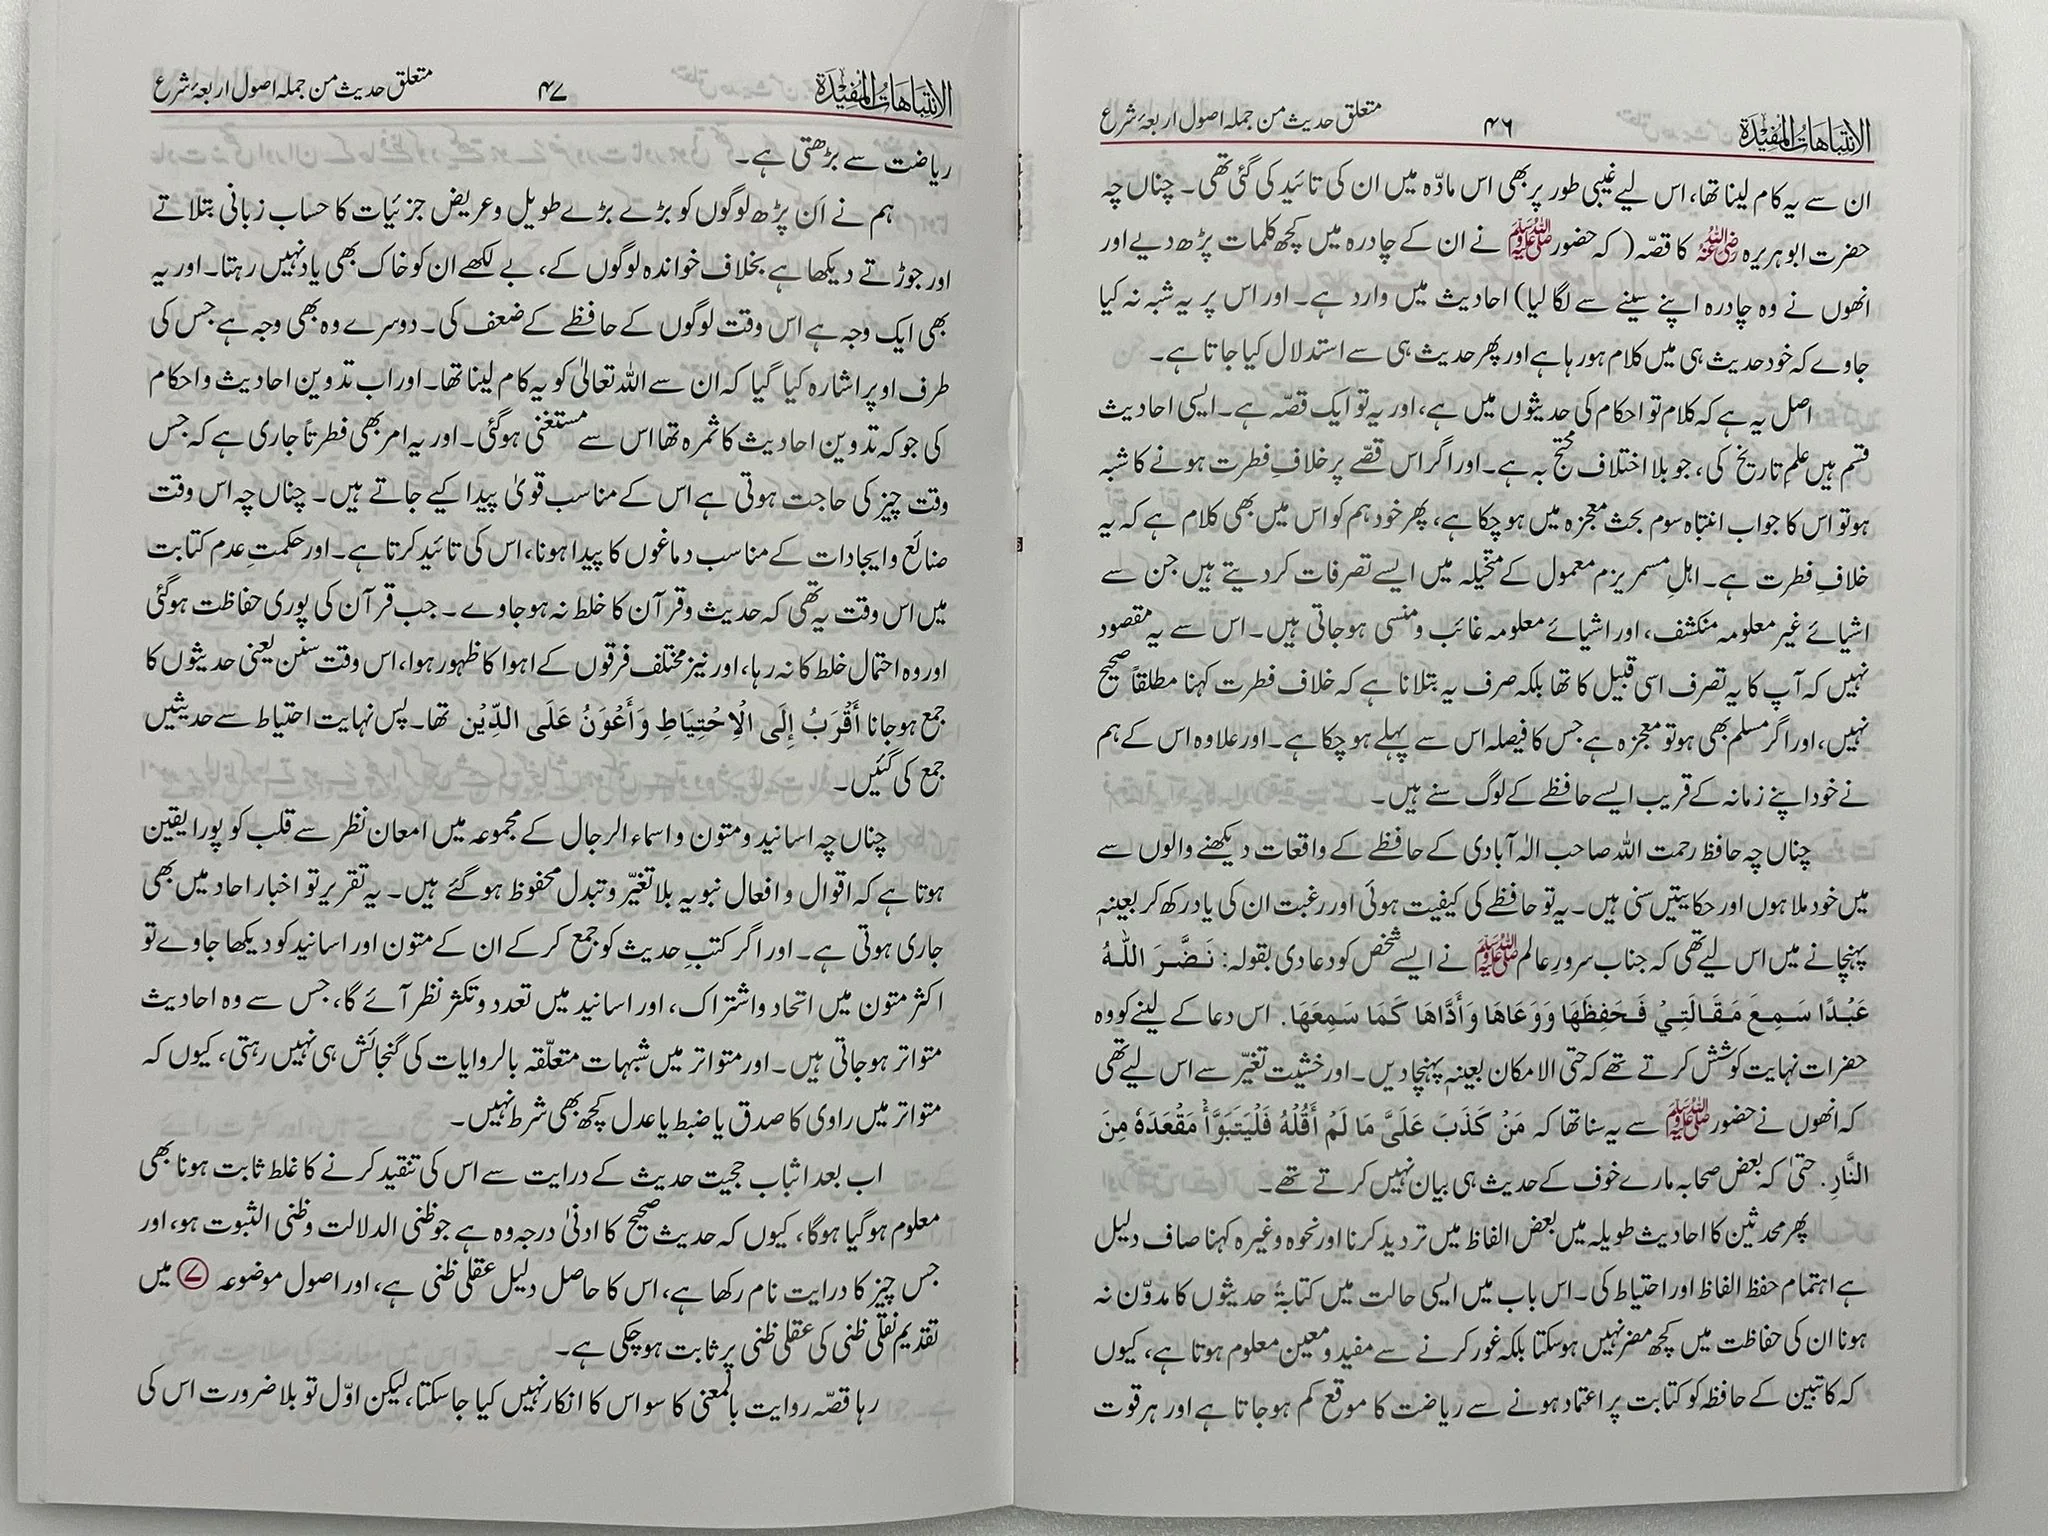 الانتباهات المفيدة ۴۶ متعلق حدیث من جملہ اصول اربعۂ شرع
ان سے یہ کام لینا تھا، اس لیے غیبی طور پر بھی اس مادّہ میں ان کی تائید کی گئی تھی۔ چناں چہ
حضرت ابوہریرہ رضی اللہ عنہ کا قصّہ (کہ حضور ﷺ نے ان کے چادرہ میں کچھ کلمات پڑھ دیے اور
انھوں نے وہ چادرہ اپنے سینے سے لگا لیا) احادیث میں وارد ہے۔ اور اس پر یہ شبہ نہ کیا
جاوے کہ خود حدیث ہی میں کلام ہو رہا ہے اور پھر حدیث ہی سے استدلال کیا جاتا ہے۔
اصل یہ ہے کہ کلام تو احکام کی حدیثوں میں ہے، اور یہ تو ایک قصّہ ہے۔ ایسی احادیث
قسم ہیں علمِ تاریخ کی، جو بلا اختلاف محتج بہ ہے۔ اور اگر اس قصّے پر خلافِ فطرت ہونے کا شبہ
ہو تو اس کا جواب انتباہ سوم بحث معجزہ میں ہو چکا ہے، پھر خود ہم کو اس میں بھی کلام ہے کہ یہ
خلافِ فطرت ہے۔ اہلِ مسمریزم معمول کے متخیلہ میں ایسے تصرفات کر دیتے ہیں جن سے
اشیائے غیر معلومہ منکشف، اور اشیائے معلومہ غائب و منسی ہو جاتی ہیں۔ اس سے یہ مقصود
نہیں کہ آپ کا یہ تصرف اسی قبیل کا تھا بلکہ صرف یہ بتلانا ہے کہ خلاف فطرت کہنا مطلقاً صحیح
نہیں، اور اگر مسلم بھی ہو تو معجزہ ہے جس کا فیصلہ اس سے پہلے ہو چکا ہے۔ اور علاوہ اس کے ہم
نے خود اپنے زمانہ کے قریب ایسے حافظے کے لوگ سنے ہیں۔
چناں چہ حافظ رحمت اللہ صاحب الٰہ آبادی کے حافظے کے واقعات دیکھنے والوں سے
میں خود ملا ہوں اور حکایتیں سنی ہیں۔ یہ تو حافظے کی کیفیت ہوئی اور رغبت ان کی یاد رکھ کر بعینہٖ
پہنچانے میں اس لیے تھی کہ جناب سرورِ عالم ﷺ نے ایسے شخص کو دعا دی بقولہ: نَضَّرَ اللّٰهُ
عَبْدًا سَمِعَ مَقَالَتِيْ فَحَفِظَهَا وَوَعَاهَا وَأَدَّاهَا كَمَا سَمِعَهَا. اس دعا کے لینے کو وہ
حضرات نہایت کوشش کرتے تھے کہ حتی الامکان بعینہٖ پہنچا دیں۔ اور خشیت تغیّر سے اس لیے تھی
کہ انھوں نے حضور ﷺ سے یہ سنا تھا کہ مَنْ كَذَبَ عَلَيَّ مَا لَمْ أَقُلْهُ فَلْيَتَبَوَّأْ مَقْعَدَهٗ مِنَ
النَّارِ. حتیٰ کہ بعض صحابہ مارے خوف کے حدیث ہی بیان نہیں کرتے تھے۔
پھر محدثین کا احادیث طویلہ میں بعض الفاظ میں تردید کرنا اور نحوہ وغیرہ کہنا صاف دلیل
ہے اہتمام حفظ الفاظ اور احتیاط کی۔ اس باب میں ایسی حالت میں کتابۃً حدیثوں کا مدوّن نہ
ہونا ان کی حفاظت میں کچھ مضر نہیں ہوسکتا بلکہ غور کرنے سے مفید و معین معلوم ہوتا ہے، کیوں
کہ کاتبین کے حافظہ کو کتابت پر اعتماد ہونے سے ریاضت کا موقع کم ہو جاتا ہے اور ہر قوت
الانتباهات المفيدة ۴۷ متعلق حدیث من جملہ اصول اربعۂ شرع
ریاضت سے بڑھتی ہے۔
ہم نے اَن پڑھ لوگوں کو بڑے بڑے طویل و عریض جزئیات کا حساب زبانی بتلاتے
اور جوڑتے دیکھا ہے بخلاف خواندہ لوگوں کے، بے لکھے ان کو خاک بھی یاد نہیں رہتا۔ اور یہ
بھی ایک وجہ ہے اس وقت لوگوں کے حافظے کے ضعف کی۔ دوسرے وہ بھی وجہ ہے جس کی
طرف اوپر اشارہ کیا گیا کہ ان سے اللہ تعالیٰ کو یہ کام لینا تھا۔ اور اب تدوین احادیث و احکام
کی جو کہ تدوین احادیث کا ثمرہ تھا اس سے مستغنی ہو گئی۔ اور یہ امر بھی فطرتاً جاری ہے کہ جس
وقت چیز کی حاجت ہوتی ہے اس کے مناسب قویٰ پیدا کیے جاتے ہیں۔ چناں چہ اس وقت
صنائع و ایجادات کے مناسب دماغوں کا پیدا ہونا، اس کی تائید کرتا ہے۔ اور حکمتِ عدم کتابت
میں اس وقت یہ تھی کہ حدیث و قرآن کا خلط نہ ہو جاوے۔ جب قرآن کی پوری حفاظت ہو گئی
اور وہ احتمال خلط کا نہ رہا، اور نیز مختلف فرقوں کے اہوا کا ظہور ہوا، اس وقت سنن یعنی حدیثوں کا
جمع ہو جانا أَقْرَبُ إِلَى الْاِحْتِيَاطِ وَأَعْوَنُ عَلَى الدِّيْن تھا۔ پس نہایت احتیاط سے حدیثیں
جمع کی گئیں۔
چناں چہ اسانید و متون و اسماء الرجال کے مجموعہ میں امعان نظر سے قلب کو پورا یقین
ہوتا ہے کہ اقوال و افعال نبویہ بلا تغیّر و تبدل محفوظ ہو گئے ہیں۔ یہ تقریر تو اخبار احاد میں بھی
جاری ہوتی ہے۔ اور اگر کتبِ حدیث کو جمع کر کے ان کے متون اور اسانید کو دیکھا جاوے تو
اکثر متون میں اتحاد و اشتراک، اور اسانید میں تعدد و تکثر نظر آئے گا، جس سے وہ احادیث
متواتر ہو جاتی ہیں۔ اور متواتر میں شبہات متعلّقہ بالروایات کی گنجائش ہی نہیں رہتی، کیوں کہ
متواتر میں راوی کا صدق یا ضبط یا عدل کچھ بھی شرط نہیں۔
اب بعد اثباب حجیت حدیث کے درایت سے اس کی تنقید کرنے کا غلط ثابت ہونا بھی
معلوم ہو گیا ہوگا، کیوں کہ حدیث صحیح کا ادنیٰ درجہ وہ ہے جو ظنی الدلالت و ظنی الثبوت ہو، اور
جس چیز کا درایت نام رکھا ہے، اس کا حاصل دلیل عقلی ظنی ہے، اور اصول موضوعہ ۷ میں
تقدیم نقلی ظنی کی عقلی ظنی پر ثابت ہو چکی ہے۔
رہا قصّہ روایت بالمعنی کا سو اس کا انکار نہیں کیا جا سکتا، لیکن اوّل تو بلا ضرورت اس کی